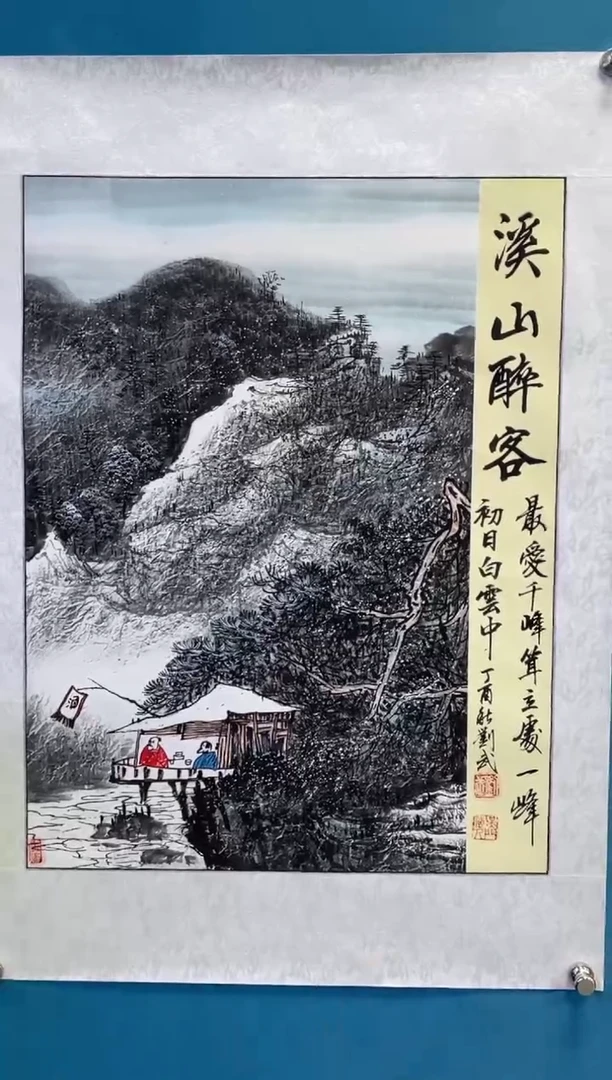 溪山醉客
最愛千峰耸立處一峰
初日白雲中
丁酉秋劉武
酒